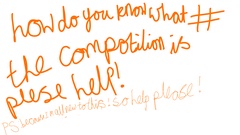 how do you know what #
the compotilion is
plese help!
PS because im new to this! so help please!